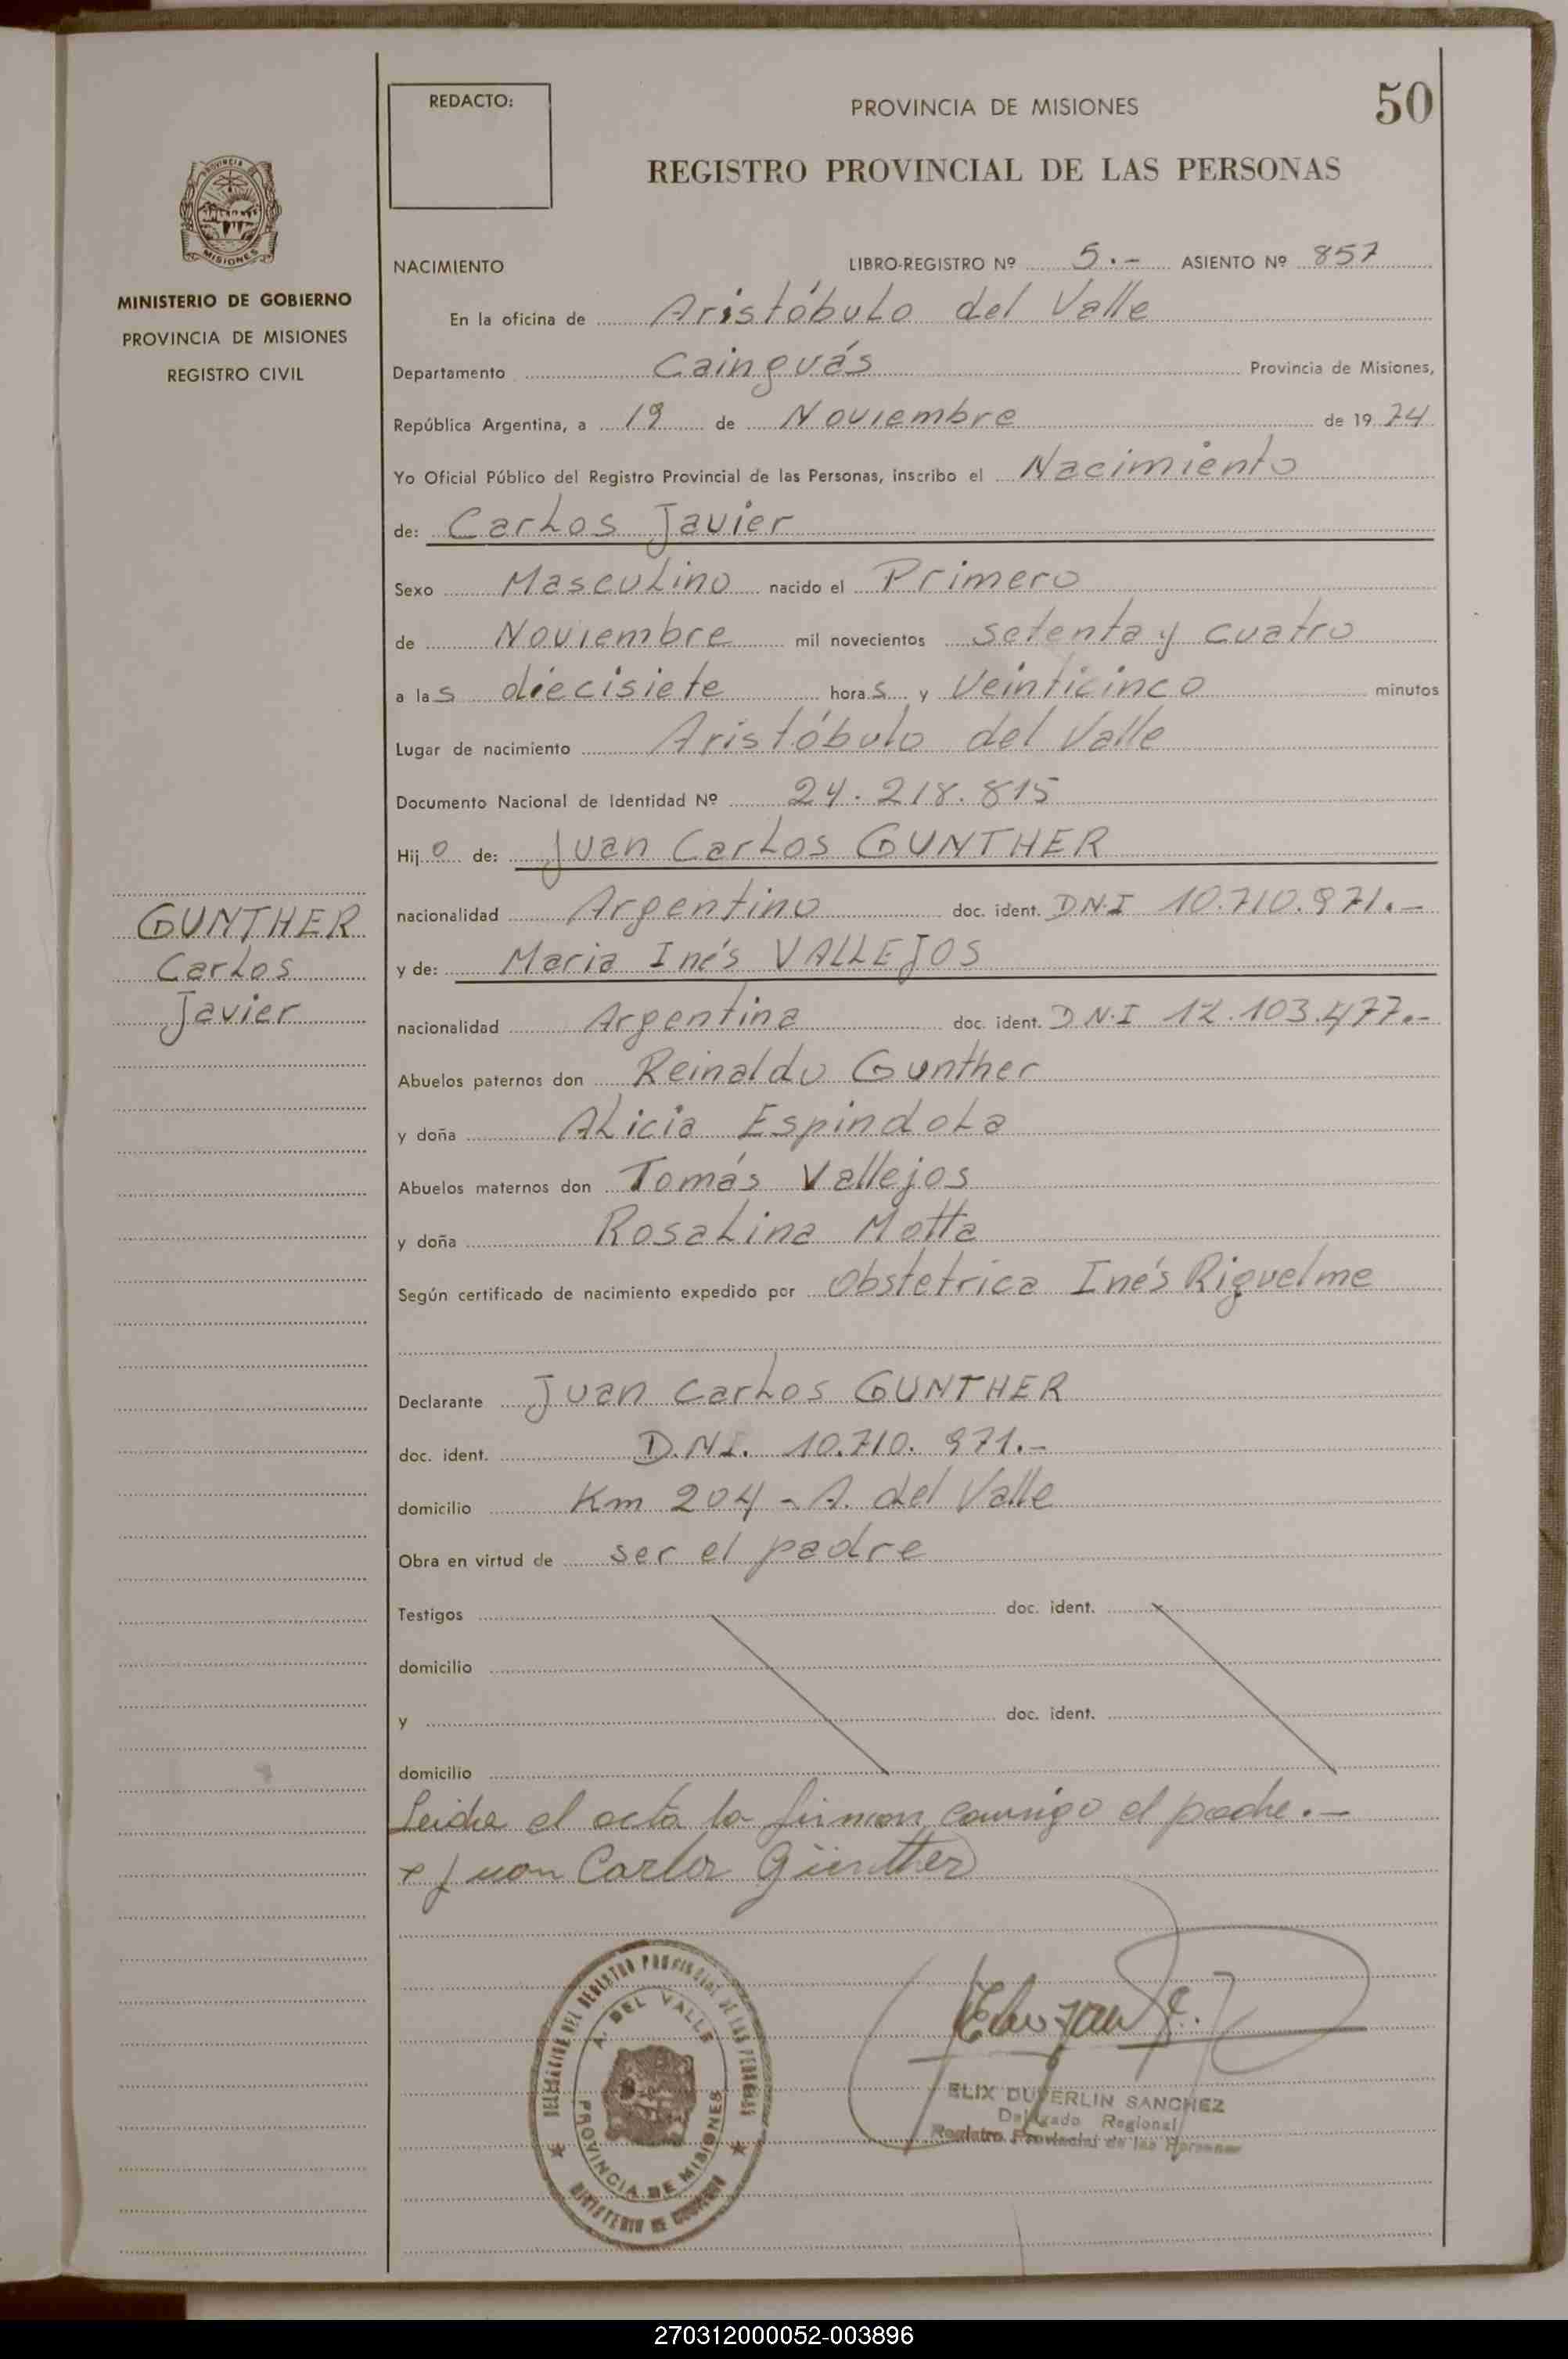 REDACTO:
PROVINCIA DE MISIONES
50
REGISTRO PROVINCIAL DE LAS PERSONAS
PROVINCIA
MISIONES
MINISTERIO DE GOBIERNO
PROVINCIA DE MISIONES
REGISTRO CIVIL
NACIMIENTO LIBRO-REGISTRO Nº 5.- ASIENTO Nº 857
En la oficina de Aristóbulo del Valle
Departamento Cainguás Provincia de Misiones,
República Argentina, a 19 de Noviembre de 1974
Yo Oficial Público del Registro Provincial de las Personas, inscribo el Nacimiento
de: Carlos Javier
Sexo Masculino nacido el Primero
de Noviembre mil novecientos setenta y cuatro
a las diecisiete horas y veinticinco minutos
Lugar de nacimiento Aristóbulo del Valle
Documento Nacional de Identidad Nº 24.218.815
Hijo de: Juan Carlos GUNTHER
nacionalidad Argentino doc. ident. D.N.I 10.710.971.-
y de: Maria Inés VALLEJOS
nacionalidad Argentina doc. ident. D.N.I 12.103.477.-
Abuelos paternos don Reinaldo Gunther
y doña Alicia Espindola
Abuelos maternos don Tomás Vallejos
y doña Rosalina Motta
Según certificado de nacimiento expedido por Obstetrica Inés Riquelme
Declarante Juan Carlos GUNTHER
doc. ident. D.N.I. 10.710.971.-
domicilio Km 204 - A. del Valle
Obra en virtud de ser el padre
Testigos doc. ident.
domicilio
y doc. ident.
domicilio
Leida el acta la firman conmigo el padre.-
x Juan Carlos Günther
GUNTHER
Carlos
Javier
DELEGACION DEL REGISTRO PROVINCIAL DE LAS PERSONAS
A. DEL VALLE
PROVINCIA DE MISIONES
MINISTERIO DE GOBIERNO
ELIX DUVERLIN SANCHEZ
Delegado Regional
Registro Provincial de las Personas
270312000052-003896